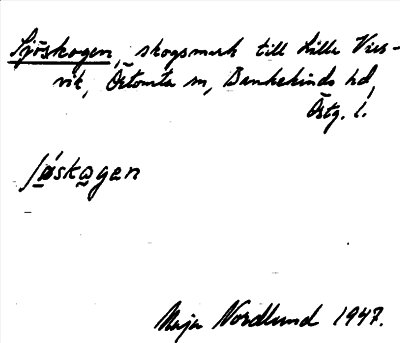 Sjöskogen, skogsmark till Lilla Vier-
vik, Örtomta sn, Bankekinds hd,
Östg. l.
ʃø̀skɷgen
Maja Nordlund 1947.